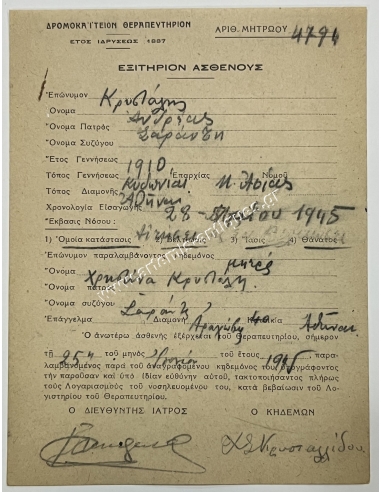 ΔΡΟΜΟΚΑΪΤΕΙΟΝ ΘΕΡΑΠΕΥΤΗΡΙΟΝ
ΕΤΟΣ ΙΔΡΥΣΕΩΣ 1887
ΑΡΙΘ. ΜΗΤΡΩΟΥ 4794
ΕΞΙΤΗΡΙΟΝ ΑΣΘΕΝΟΥΣ
Ἐπώνυμον Κρυστάλης
Ὄνομα Ἀνδρέας
Ὄνομα Πατρός Σαράντη
Ὄνομα Συζύγου
Ἔτος Γεννήσεως 1910
Τόπος Γεννήσεως Κυδωνίαι Ἐπαρχίας Νομοῦ Μ. Ἀσίας
Τόπος Διαμονῆς Ἀθῆναι
Χρονολογία Εἰσαγωγῆς 28 1945
Ἔκβασις Νόσου:
1) Ὁμοία κατάστασις 2) Βελτίωσις 3) Ἴασις 4) Θάνατος
Ἐπώνυμον παραλαμβάνοντος κηδεμόνος μητρός
Ὄνομα Χρηστίνα Κρυστάλη
Ὄνομα πατρός
Ὄνομα συζύγου Σαράντ
Ἐπάγγελμα Διαμονή Κατοικία Ἀθῆναι
Ὁ ἀνωτέρω ἀσθενής ἐξέρχεται τοῦ Θεραπευτηρίου, σήμερον
τῇ 25ῃ τοῦ μηνός τοῦ ἔτους 1945, παρα-
λαμβανόμενος παρά τοῦ ἀναγραφομένου κηδεμόνος του, ὑπογράφοντος
τήν παροῦσαν καί ὑπό ἰδίαν εὐθύνην αὐτοῦ, τακτοποιήσαντος πλήρως
τούς Λογαριασμούς τοῦ νοσηλευομένου του, κατά βεβαίωσιν τοῦ Λο-
γιστηρίου τοῦ Θεραπευτηρίου.
Ο ΔΙΕΥΘΥΝΤΗΣ ΙΑΤΡΟΣ Ο ΚΗΔΕΜΩΝ